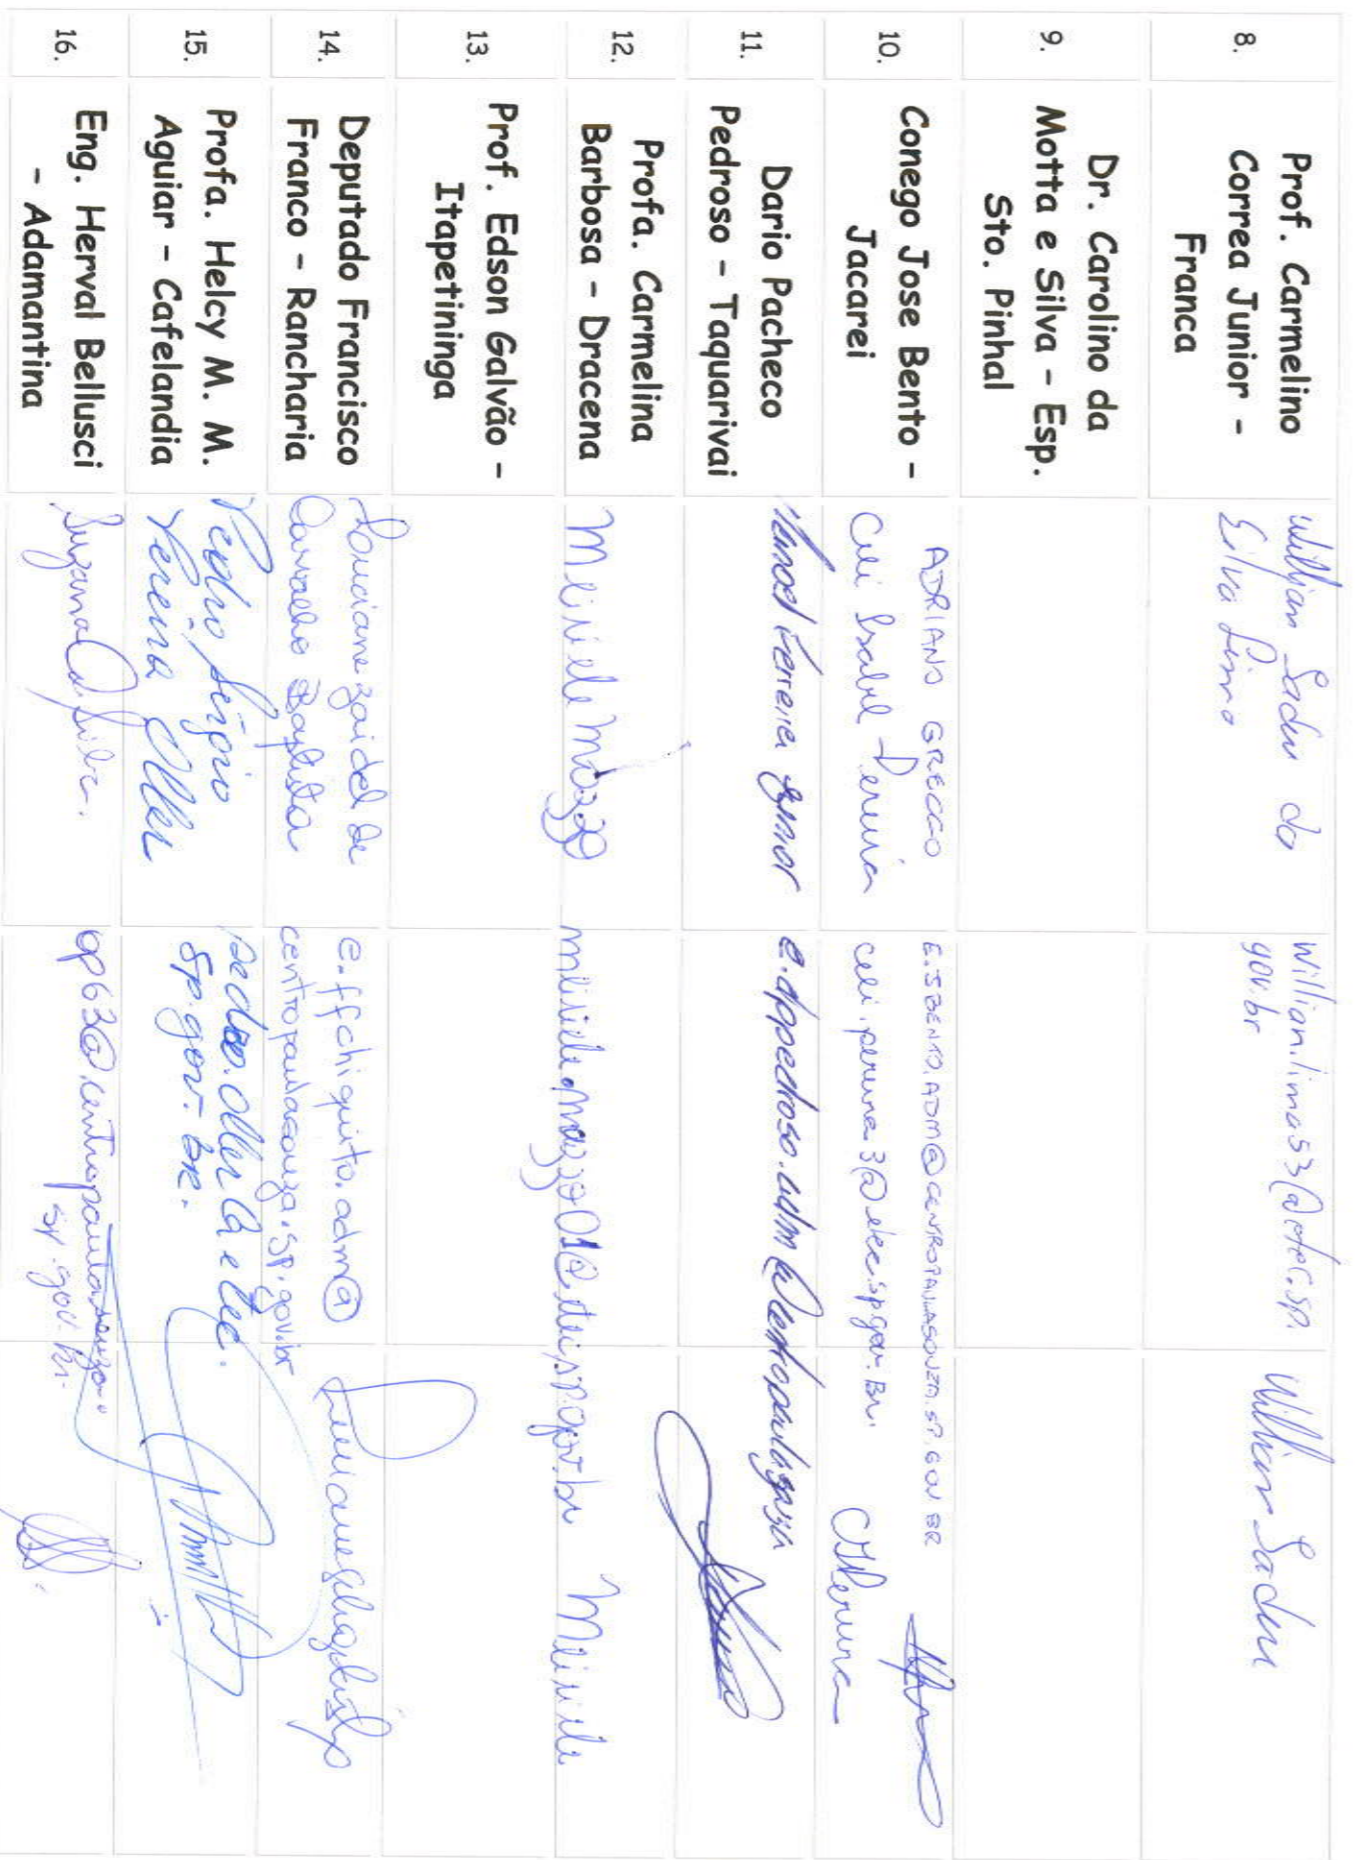 8.
Prof. Carmelino
Correa Junior -
Franca
Willian Sader da
Silva Lima
willian.lima53@etec.sp.
gov.br
Willian Sader
9.
Dr. Carolino da
Motta e Silva - Esp.
Sto. Pinhal
10.
Conego Jose Bento -
Jacarei
ADRIANO GRECCO
Celi Isabel
E.JBENTO.ADM@CENTROPAULASOUZA.SP.GOV BR
11.
Dario Pacheco
Pedroso - Taquarivai
e.dppedroso.adm@centropaulasouza
12.
Profa. Carmelina
Barbosa - Dracena
13.
Prof. Edson Galvão -
Itapetininga
14.
Deputado Francisco
Franco - Rancharia
Louciane zaidel de
Carvalho Baptista
e.ffchiquito.adm@
centropaulasouza.sp.gov.br
15.
Profa. Helcy M. M.
Aguiar - Cafelandia
Pedro Sérgio
Pereira Oller
pedro.oller@etec.
sp.gov.br.
16.
Eng. Herval Bellusci
- Adamantina
op63@centropaulasouza.
sp.gov.br.